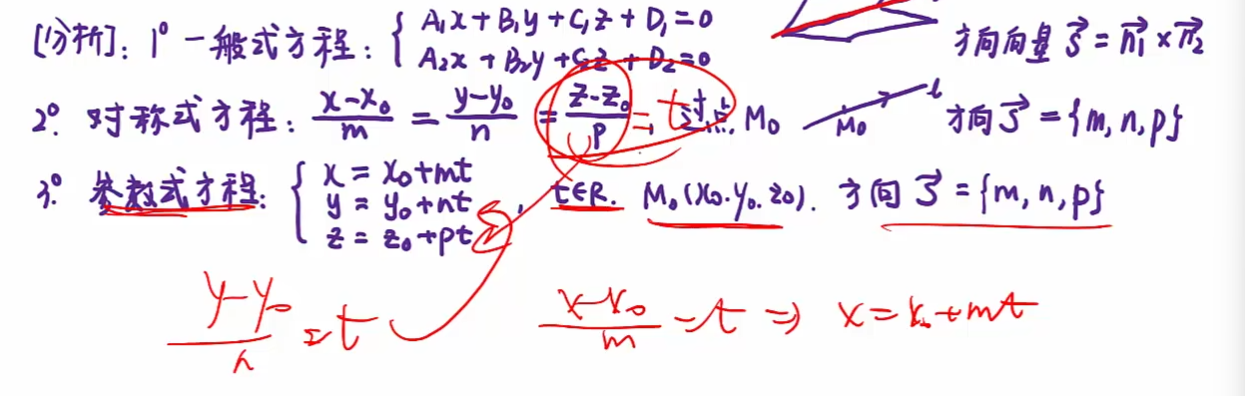 [分析]: 1° 一般式方程: { A₁x + B₁y + C₁z + D₁ = 0
A₂x + B₂y + C₂z + D₂ = 0 方向向量 s⃗ = n₁⃗ × n₂⃗
2°. 对称式方程: (x-x₀)/m = (y-y₀)/n = (z-z₀)/p = t, 过点 M₀ M₀ L 方向 s⃗ = {m, n, p}
3°. 参数式方程: { x = x₀+mt
y = y₀+nt , t∈R. M₀(x₀. y₀. z₀). 方向 s⃗ = {m, n, p}
z = z₀+pt
(y-y₀)/n = t (x-x₀)/m = t ⇒ x = x₀+mt